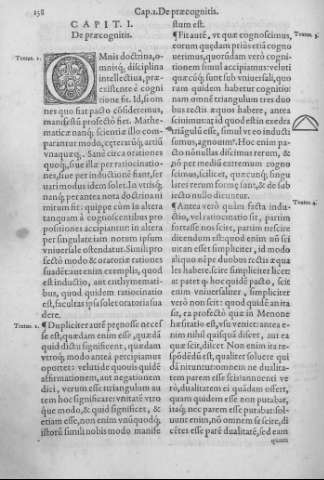 158
Cap.1. De præcognitis.
CAPIT I.
De præcognitis.
Textus. 1.
OMnis doctrina, o-
mnisq; disciplina
intellectiua, præ-
existente è cogni
tione fit. Id, si om
nes quo fiat pacto cõsideremus,
manifestũ profectò fiet. Mathe-
maticæ nanq; scientiæ illo com-
parantur modo, cęterarũq; artiũ
vnaquæq;. Sanè circa orationes
quoq;, siue illæ per ratiocinatio-
nes, siue per inductionē fiant, ser
uari modus idem solet. In vtrisq;
nanq; per antea nota doctrina ni
mirum fit: quippe cùm in altera
tanquam à cognoscentibus pro
positiones accipiantur: in altera
per singulare iam notum ipsum
vniuersale ostendatur. Simili pro
fectò modo & oratoriæ rationes
suadēt: aut enim exemplis, quod
est inductio, aut enthymemati-
bus, quod quidem ratiocinatio
est, facultas ipsa solet oratoria sua
dere.
Textus. 2.
¶Dupliciter autē prænosse neces
se est, quædam enim esse, quædã
quid dictũ significent, quædam
vtroq; modo antea percipiamus
oportet: velut id de quouis quidē
affirmationem, aut negationem
dici, verum esse: triangulum au-
tem hoc significare: vnitatē vtro
que modo, & quid significet, &
etiam esse, non enim vnũquodq;
istorũ simili nobis modo manife
stum est.
Textus. 3.
¶Fit autē, vt quæ cognoscimus,
eorum quædam priùs etiã cogno
uerimus, quorũdam verò cogni-
tionem simul accipiamus: veluti
quæcũq; sunt sub vniuersali, quo
rum quidem habetur cognitio:
nam omnē triangulum tres duo
bus rectis æquos habere, antea
sciuimus: at id quod est in exedra
triãgulũ esse, simul vt eo inducti
sumus, agnouimꝰ. Hoc enim pa-
cto nõnullas discimus rerum, &
nõ per mediũ extremum cogno
scimus, scilicet, quæcunq; singu-
lares rerum formę sunt, & de sub
iecto nullo dicuntur.
Textus. 4.
¶Antea verò quàm facta indu-
ctio, vel ratiocinatio sit, partim
fortasse nos scire, partim nescire
dicendum est: quod enim nũ sit
omnino esset simpliciter, id modo
aliquo nēpe duobus rectis æqua
les habere scire simpliciter licet:
at patet q hoc quidē pacto, scit
enim vniuersaliter, simpliciter
verò non scit: quod quidē an ita
sit, ea profectò quæ in Menone
hæsitatio est, vsu veniet: antea e-
nim nihil quisquã discet, aut ea
quæ scit, dicet. Non enim ita re-
spõdēdũ est, qualiter soluere qui
dã nituntur: omnem ne dualita-
tem parem esse scis: annuenti ve
rò, dualitatem ei quãdam offert,
quam quidem esse non putabat,
itaq; nec parem esse putabat: sol-
uunt enim, nõ omnem se scire, di
cētes esse parē dualitatē, sed eam
quam